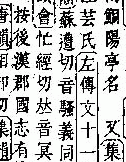 陽亭名 又集
氏左傳文十一
蘇遭切音騷義同
會忙經切𠀤音冥
按後漢郡國志有